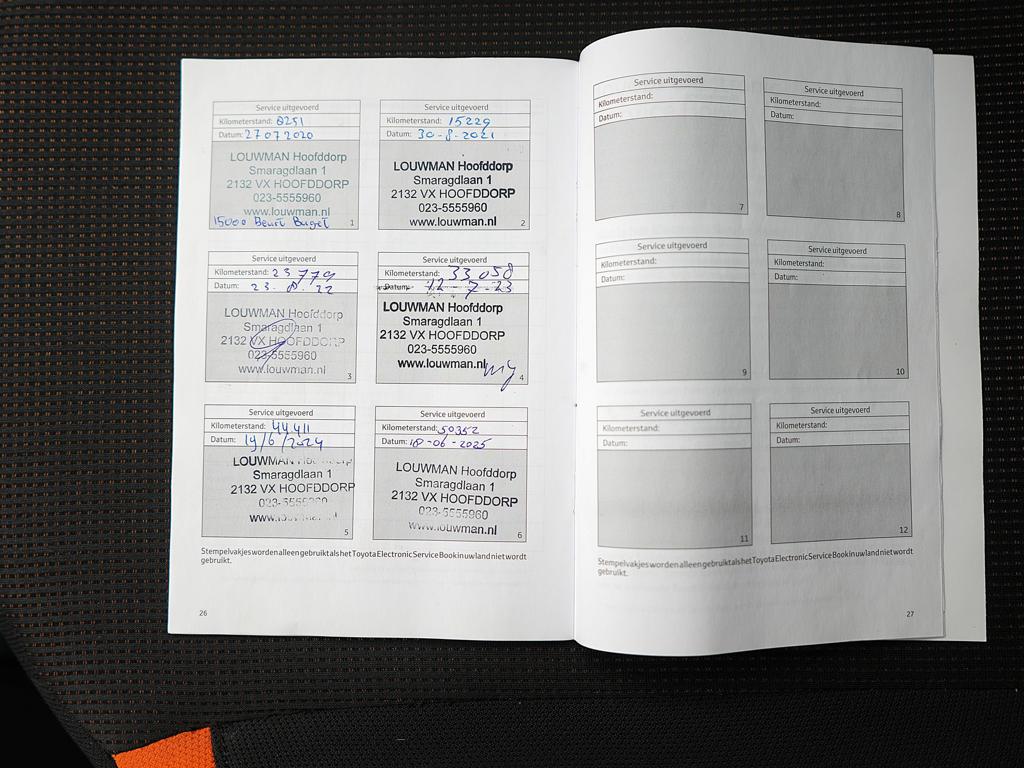 Service uitgevoerd
Kilometerstand: 8251
Datum: 27 07 2020
LOUWMAN Hoofddorp
Smaragdlaan 1
2132 VX HOOFDDORP
023-5555960
www.louwman.nl
15000 Beurt Buget
1
Service uitgevoerd
Kilometerstand: 15229
Datum: 30-8-2021
LOUWMAN Hoofddorp
Smaragdlaan 1
2132 VX HOOFDDORP
023-5555960
www.louwman.nl
2
Service uitgevoerd
Kilometerstand: 23779
Datum: 23.8.22
LOUWMAN Hoofddorp
Smaragdlaan 1
2132 VX HOOFDDORP
023-5555960
www.louwman.nl
3
Service uitgevoerd
Kilometerstand: 33058
Datum: 12-7-23
LOUWMAN Hoofddorp
Smaragdlaan 1
2132 VX HOOFDDORP
023-5555960
www.louwman.nl
4
Service uitgevoerd
Kilometerstand: 44411
Datum: 19/6/2024
LOUWMAN Hoofddorp
Smaragdlaan 1
2132 VX HOOFDDORP
023-5555960
5
Service uitgevoerd
Kilometerstand: 50352
Datum: 18-06-2025
LOUWMAN Hoofddorp
Smaragdlaan 1
2132 VX HOOFDDORP
023-5555960
www.louwman.nl
6
Stempelvakjes worden alleen gebruikt als het Toyota Electronic Service Book in uw land niet wordt
gebruikt.
26
Service uitgevoerd
Kilometerstand:
Datum:
7
Service uitgevoerd
Kilometerstand:
Datum:
8
Service uitgevoerd
Kilometerstand:
Datum:
9
Service uitgevoerd
Kilometerstand:
Datum:
10
Service uitgevoerd
Kilometerstand:
Datum:
11
Service uitgevoerd
Kilometerstand:
Datum:
12
Stempelvakjes worden alleen gebruikt als het Toyota Electronic Service Book in uw land niet wordt
gebruikt.
27